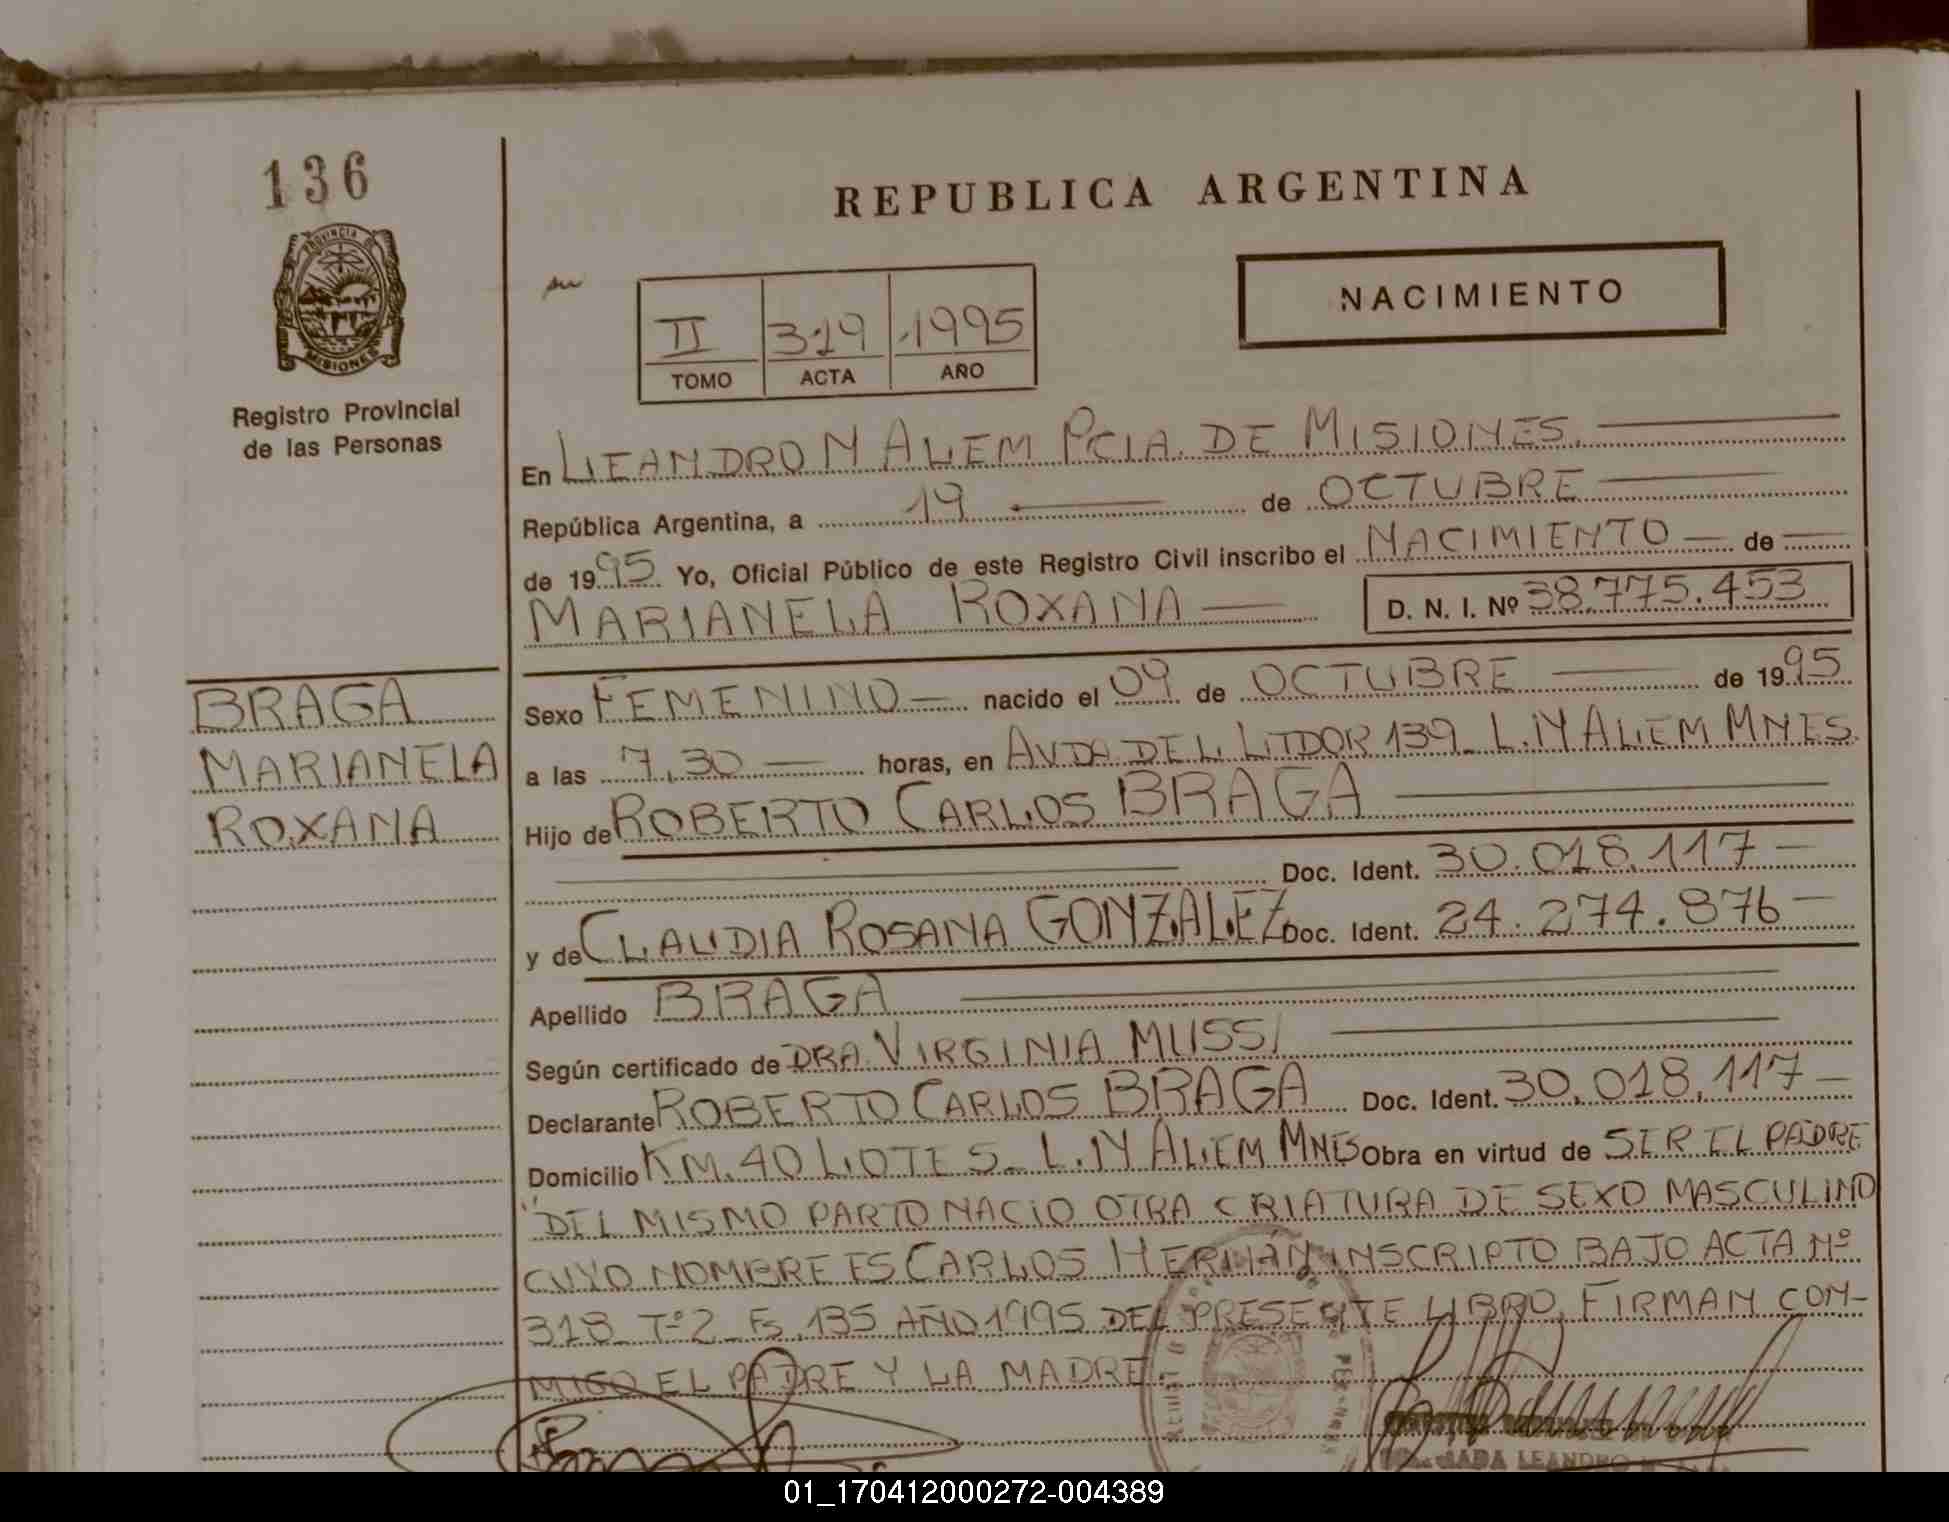 136
PROVINCIA DE
MISIONES
Registro Provincial
de las Personas
REPUBLICA ARGENTINA
NACIMIENTO
II 319 1995
TOMO ACTA AÑO
En LEANDRO N ALEM PCIA. DE MISIONES.
República Argentina, a 19 de OCTUBRE
de 1995 Yo, Oficial Público de este Registro Civil inscribo el NACIMIENTO de
MARIANELA ROXANA D. N. I. Nº 38.775.453
BRAGA
MARIANELA
ROXANA
Sexo FEMENINO nacido el 09 de OCTUBRE de 1995
a las 7,30 horas, en AVDA DEL LIDOR 139 L.N ALEM MNES.
Hijo de ROBERTO CARLOS BRAGA
Doc. Ident. 30.018.117
y de CLAUDIA ROSANA GONZALEZ Doc. Ident. 24.274.876
Apellido BRAGA
Según certificado de DRA. VIRGINIA MUSSI
Declarante ROBERTO CARLOS BRAGA Doc. Ident. 30.018.117
Domicilio KM. 40 LOTE 5 L.N ALEM MNES Obra en virtud de SER EL PADRE
"DEL MISMO PARTO NACIO OTRA CRIATURA DE SEXO MASCULINO
CUYO NOMBRE ES CARLOS HERNÁN INSCRIPTO BAJO ACTA Nº
318 Tº 2 Fs. 135 AÑO 1995 DEL PRESENTE LIBRO, FIRMAN CON-
MIGO EL PADRE Y LA MADRE
01_170412000272-004389